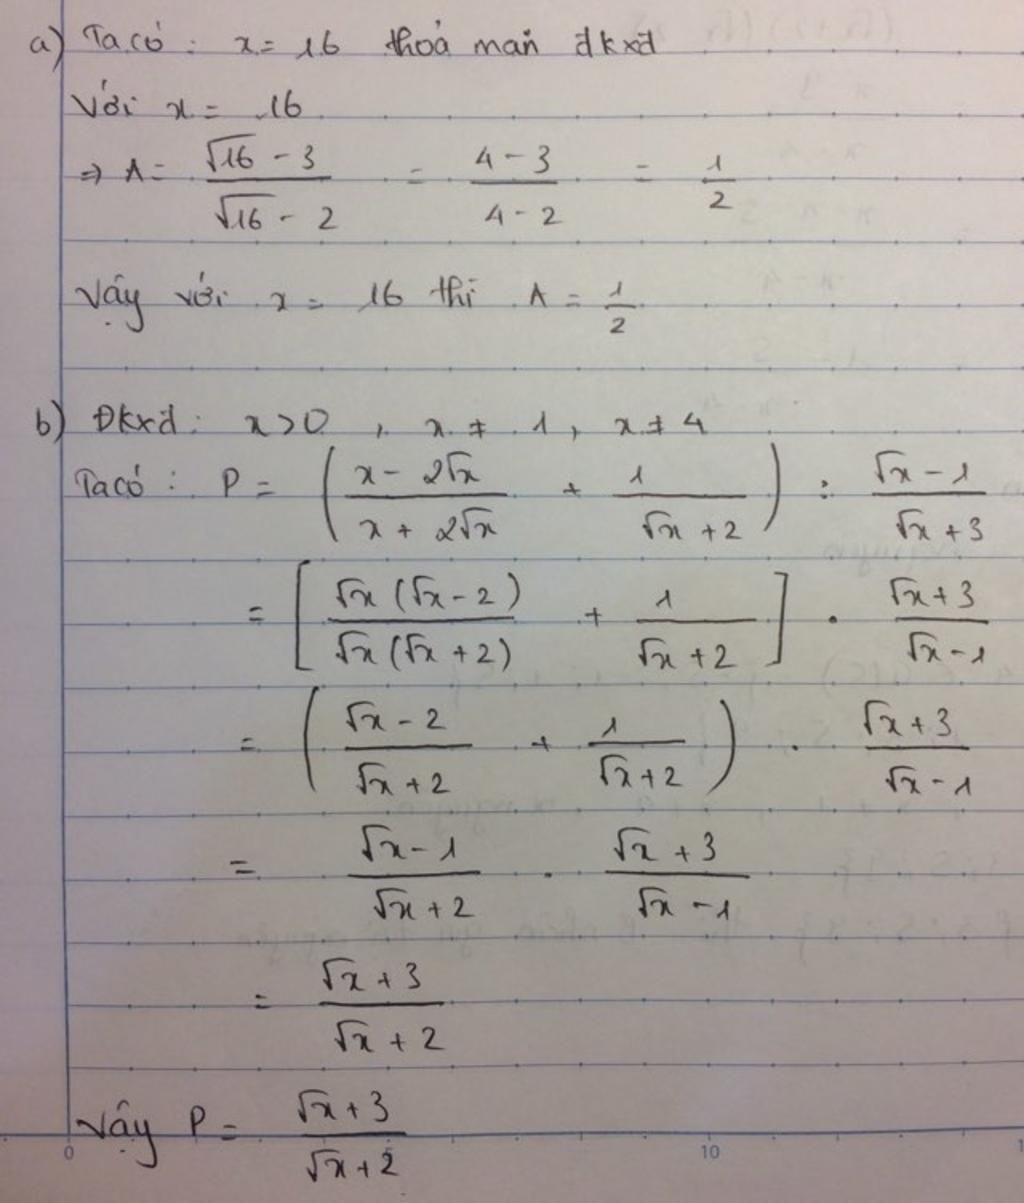 a) Ta có : x = 16 thoả mãn đkxđ
Với x = 16
=> A = (√16 - 3)/(√16 - 2) = (4 - 3)/(4 - 2) = 1/2
Vậy với x = 16 thì A = 1/2
b) Đkxđ : x > 0 , x ≠ 1 , x ≠ 4
Ta có : P = ((x - 2√x)/(x + 2√x) + 1/(√x + 2)) : (√x - 1)/(√x + 3)
= [(√x (√x - 2))/(√x (√x + 2)) + 1/(√x + 2)] . (√x + 3)/(√x - 1)
= ((√x - 2)/(√x + 2) + 1/(√x + 2)) . (√x + 3)/(√x - 1)
= (√x - 1)/(√x + 2) . (√x + 3)/(√x - 1)
= (√x + 3)/(√x + 2)
Vậy P = (√x + 3)/(√x + 2)
0 5 10